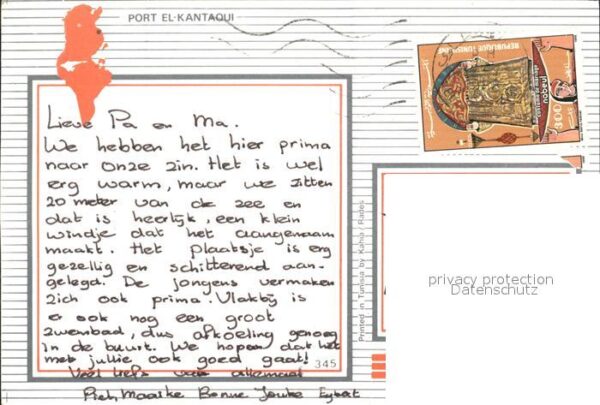 PORT EL-KANTAOUI
REPUBLIQUE TUNISIENNE
nabeul
300
Lieve Pa en Ma.
We hebben het hier prima
naar onze zin. Het is wel
erg warm, maar we zitten
20 meter van de zee en
dat is heerlijk, een klein
windje dat het aangenaam
maakt. Het plaatsje is erg
gezellig en schitterend aan-
gelegd. De jongens vermaken
zich ook prima. Vlakbij is
er ook nog een groot
zwembad, dus afkoeling genoeg
in de buurt. We hopen dat het
met jullie ook goed gaat!
345
Veel liefs van allemaal
Piet, Maaike Bonne Jouke Egbert
Printed in Tunisia by Kahia / Rades
privacy protection
Datenschutz